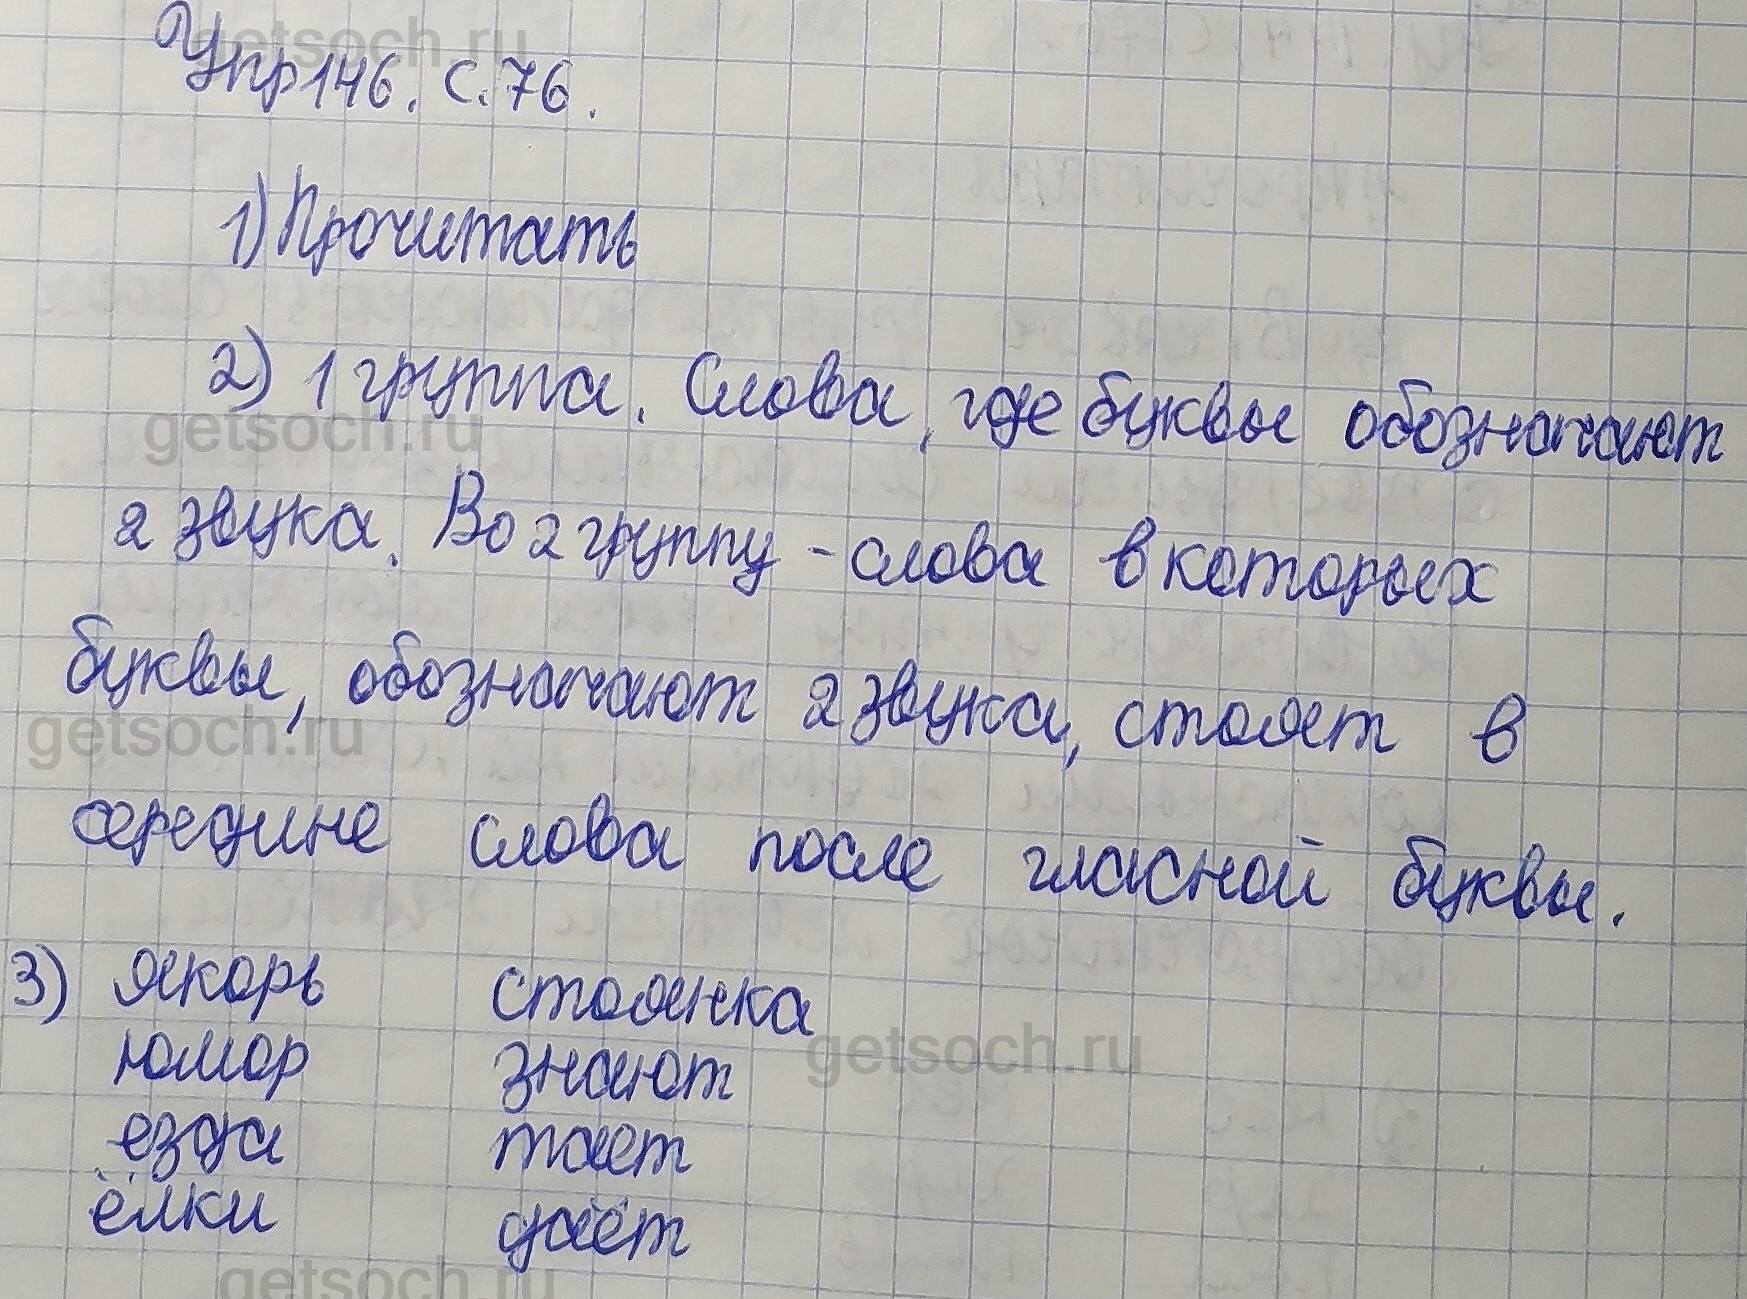 getsoch.ru
Упр146. с.76.
1) Прочитать
2) 1 группа. Слова, где буквы обозначают
getsoch.ru
2 звука. Во 2 группу - слова в которых
буквы, обозначают 2 звука, стоят в
getsoch.ru
середине слова после гласной буквы.
3) якорь стоянка
getsoch.ru
юмор знают
езда тает
ёлки даёт
getsoch.ru